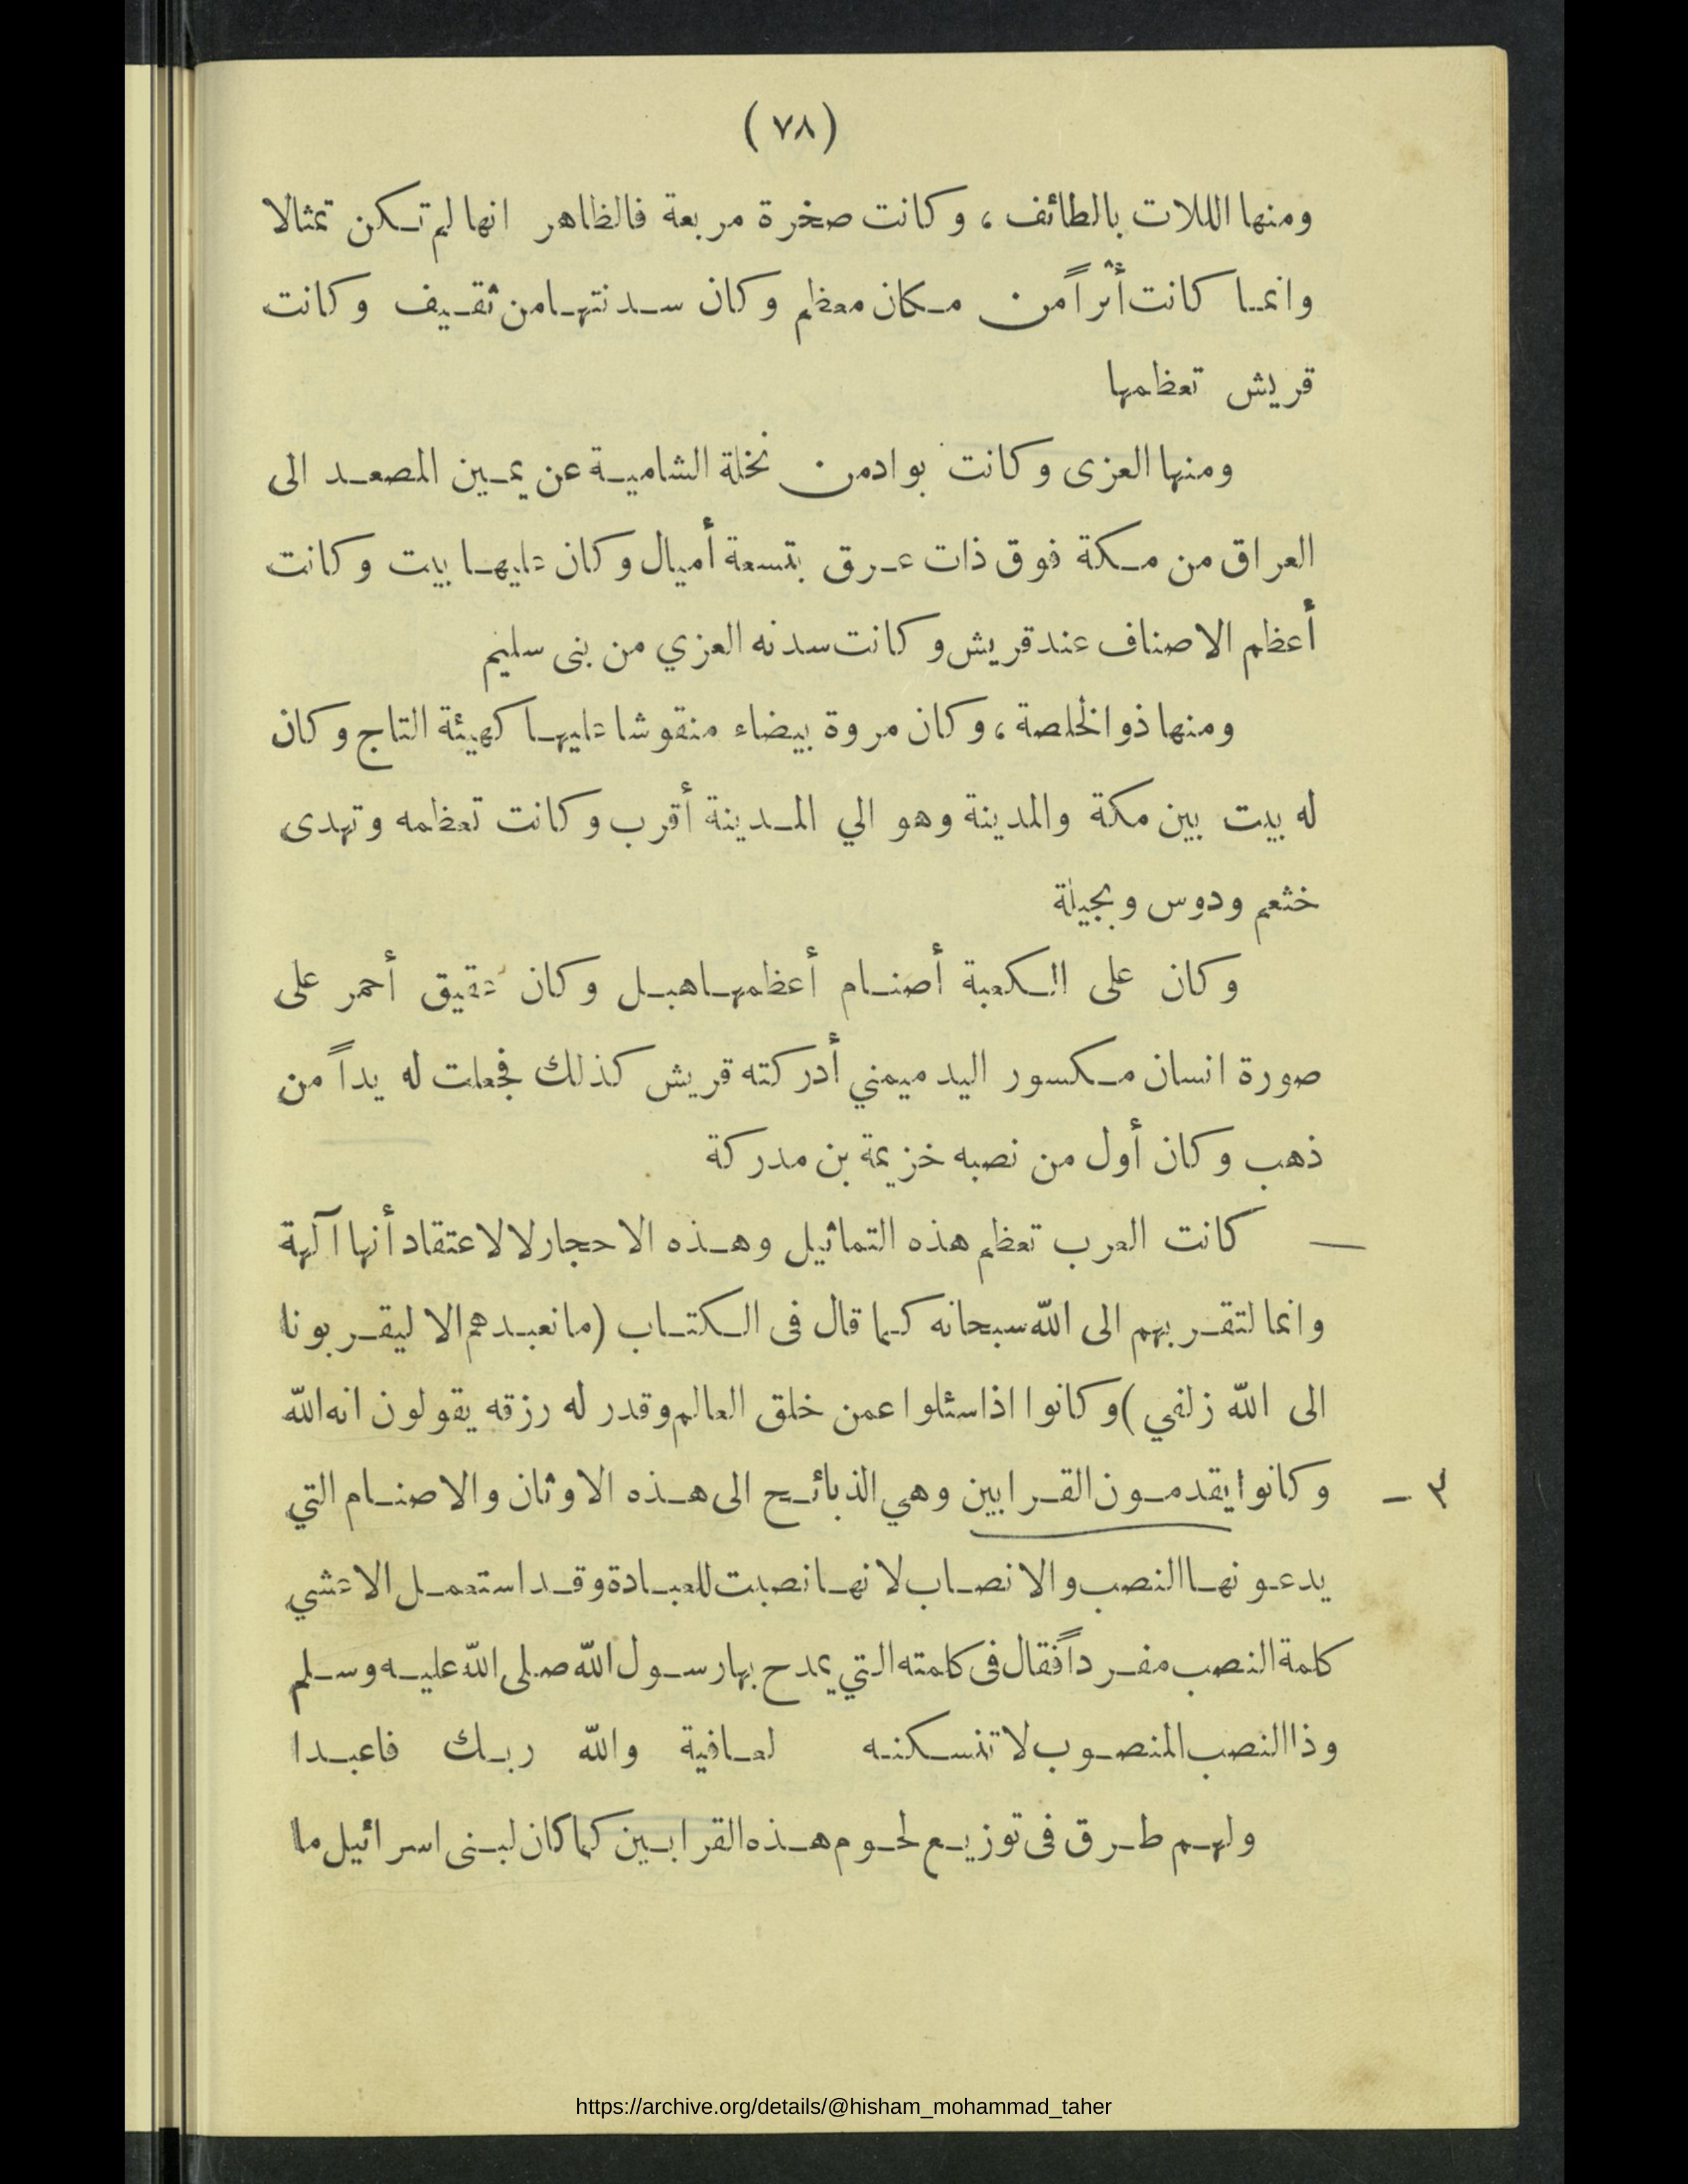 (٧٨)
ومنها الللات بالطائف ، وكانت صخرة مربعة فالظاهر انها لم تكن تمثالا
وانما كانت أثراً من مكان معظم وكان سدنتها من ثقيف وكانت
قريش تعظمها
ومنها العزى وكانت بواد من نخلة الشامية عن يمين المصعد الى
العراق من مكة فوق ذات عرق بتسعة أميال وكان عليها بيت وكانت
أعظم الاصناف عند قريش وكانت سدنه العزي من بنى سليم
ومنها ذو الخلصة ، وكان مروة بيضاء منقوشا عليها كهيئة التاج وكان
له بيت بين مكة والمدينة وهو الي المدينة أقرب وكانت تعظمه وتهدى
خثعم ودوس وبجيلة
وكان على الكعبة أصنام أعظمها هبل وكان عقيق أحمر على
صورة انسان مكسور اليد ميمني أدركته قريش كذلك فجعلت له يداً من
ذهب وكان أول من نصبه خزيمة بن مدركة
— كانت العرب تعظم هذه التماثيل وهذه الاحجار لا لاعتقاد أنها آلهة
وانما لتقربهم الى الله سبحانه كما قال فى الكتاب (ما نعبدهم الا ليقربونا
الى الله زلفي ) وكانوا اذا سئلوا عمن خلق العالم وقدر له رزقه يقولون انه الله
٣ - وكانوا يقدمون القرابين وهي الذبائح الى هذه الاوثان والاصنام التي
يدعونها النصب والانصاب لانها نصبت للعبادة وقد استعمل الاعشي
كلمة النصب مفرداً فقال فى كلمته التي يمدح بها رسول الله صلى الله عليه وسلم
وذا النصب المنصوب لا تنسكنه لعافية والله ربك فاعبدا
ولهم طرق فى توزيع لحوم هذه القرابين كما كان لبنى اسرائيل ما
https://archive.org/details/@hisham_mohammad_taher